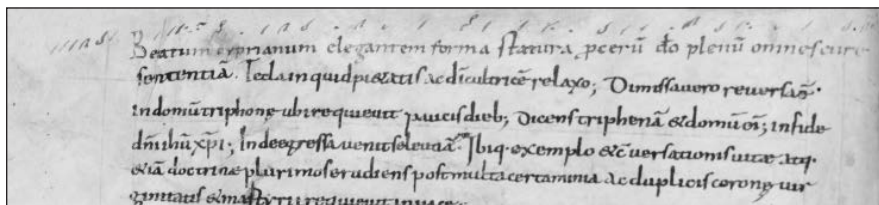 Beatum cyprianum elegantem forma statura pcerū dō plenū omnes
sententiā. Tecla inquid pietatis ac dī cultricē relaxo; Dimissa vero reversa
in domū triphonę ubi requievit paucis dieb; Dicens tripheniā & domū in fide
dnī ihū xp̄i; Inde egressa venit seleutiā. Ibiq· exemplo & cversationis vitæ atq·
&iā doctrinę plurimos erudiens post multa certamina ac duplicis coronę vir
ginitatis & martyrii requievit in pace